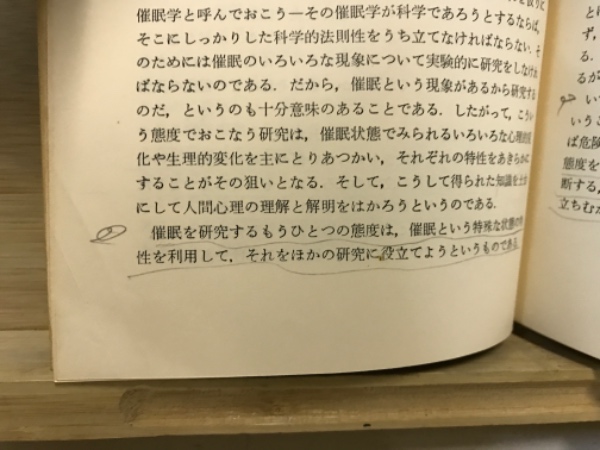 催眠学と呼んでおこう—その催眠学が科学であろうとするならば,
そこにしっかりした科学的法則性をうち立てなければならない. そ
のためには催眠のいろいろな現象について実験的に研究をしなけれ
ばならないのである. だから, 催眠という現象があるから研究する
のだ, というのも十分意味のあることである. したがって, こうい
う態度でおこなう研究は, 催眠状態でみられるいろいろな心理的変
化や生理的変化を主にとりあつかい, それぞれの特性をあきらかに
することがその狙いとなる. そして, こうして得られた知識を土台
にして人間心理の理解と解明をはかろうというのである.
催眠を研究するもうひとつの態度は, 催眠という特殊な状態の特
性を利用して, それをほかの研究に役立てようというものである.
ず,
る.
るが
い
いうこ
ば危険
態度を
断する,
立ちむか